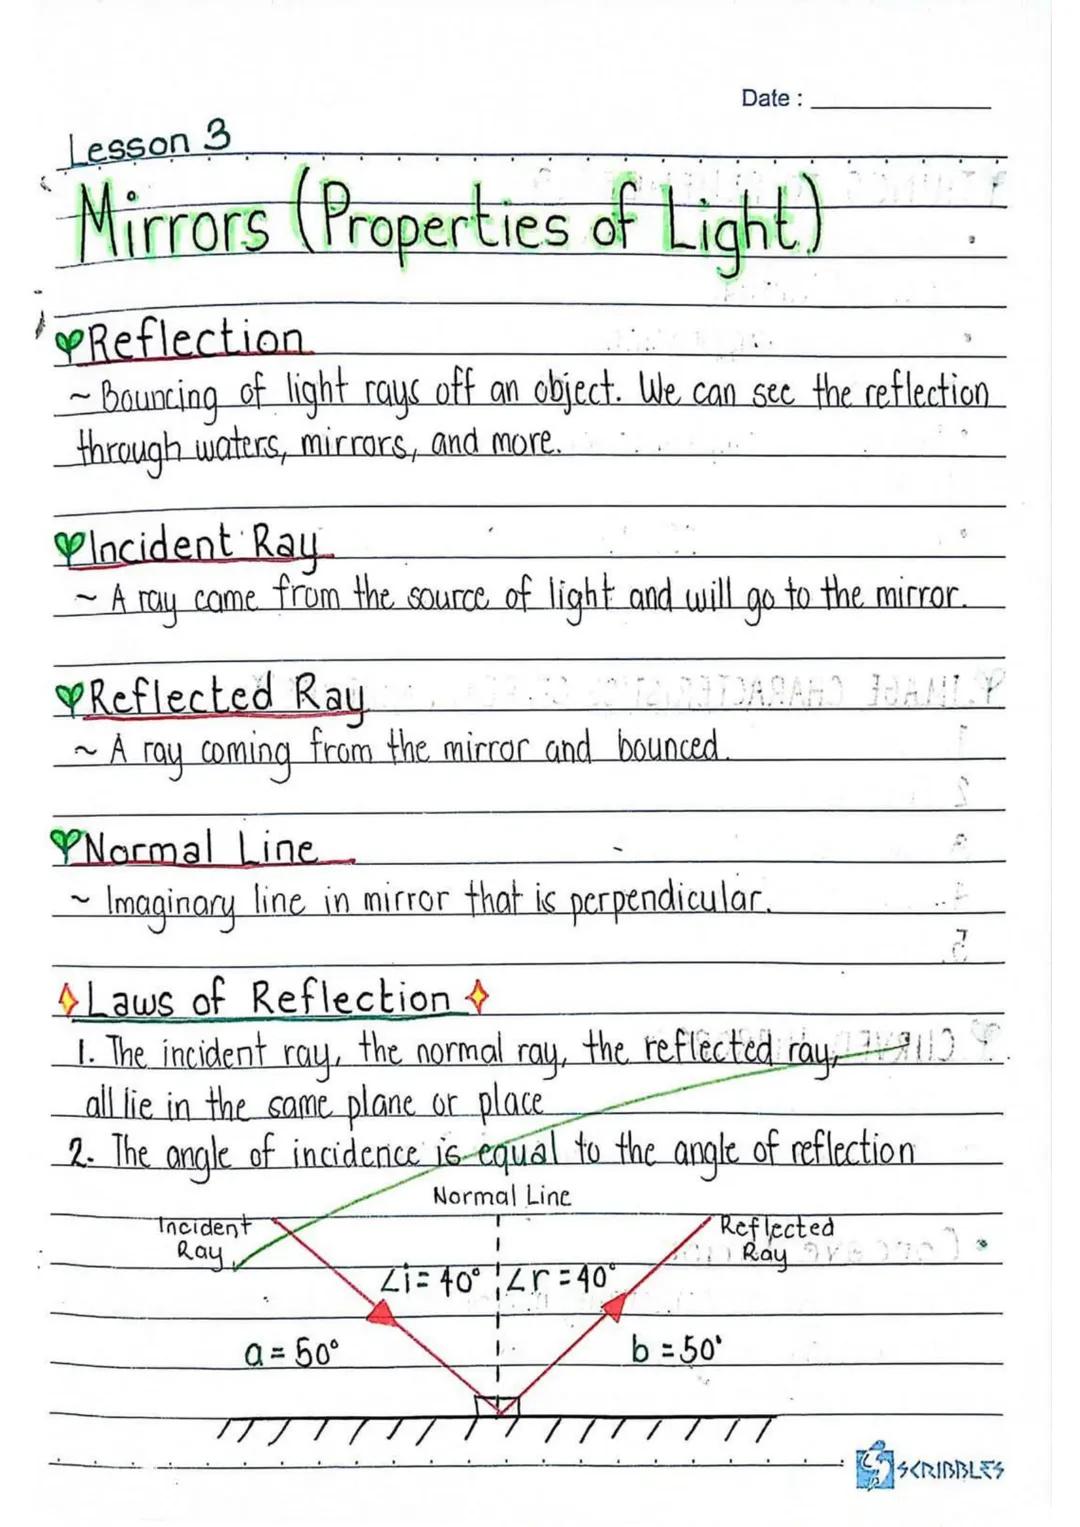 Date :
Lesson 3
Mirrors (Properties of Light)
Reflection
~ Bouncing of light rays off an object. We can see the reflection
through waters, mirrors, and more.
Incident Ray
~ A ray came from the source of light and will go to the mirror.
Reflected Ray
~ A ray coming from the mirror and bounced.
Normal Line
~ Imaginary line in mirror that is perpendicular.
Laws of Reflection
1. The incident ray, the normal ray, the reflected ray,
all lie in the same plane or place
2. The angle of incidence is equal to the angle of reflection
Normal Line
Incident
Ray
Reflected
Ray
∠i = 40° ∠r = 40°
a = 50° b = 50°
SCRIBBLES